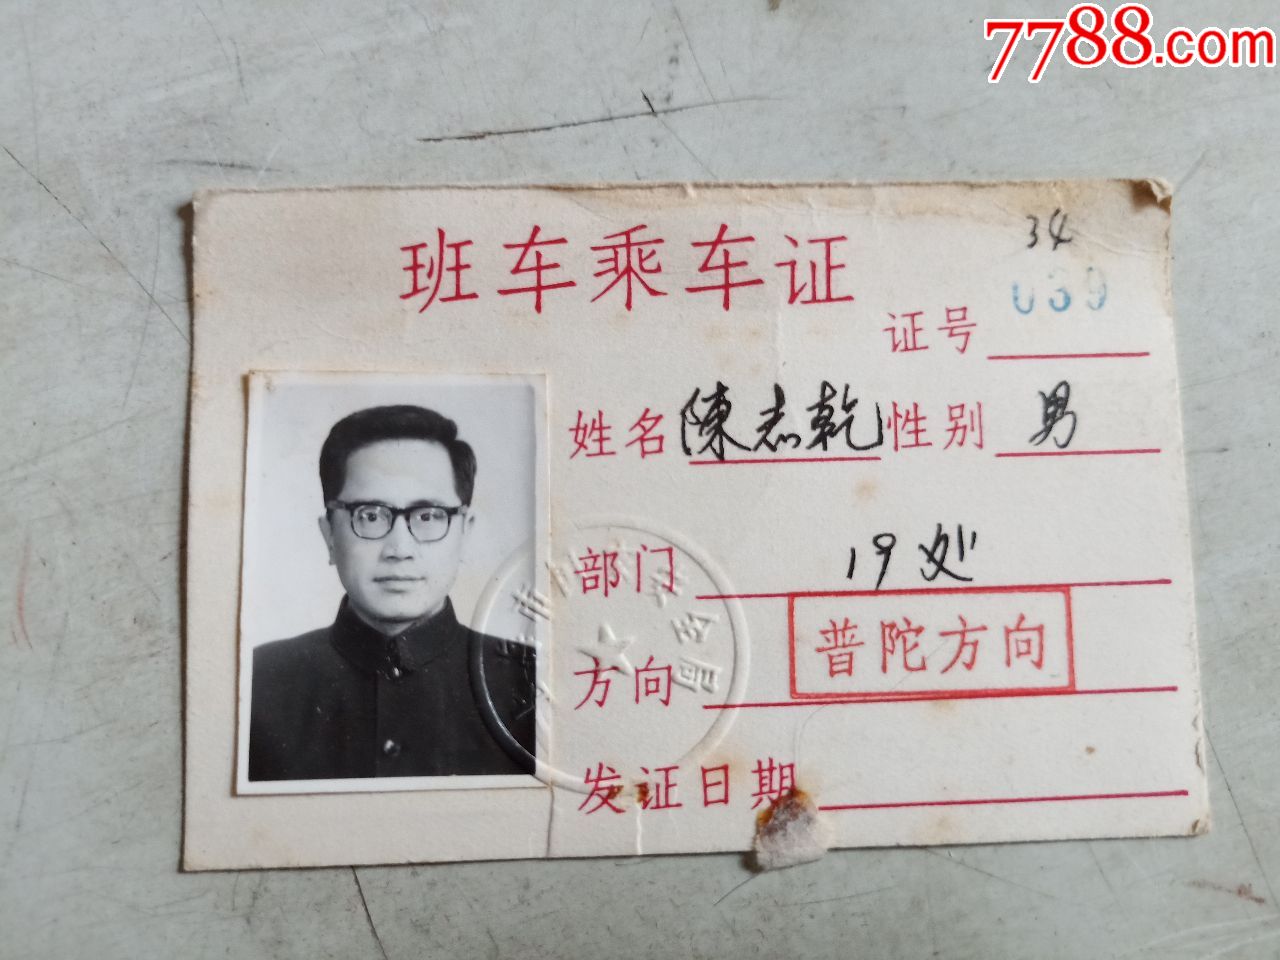 7788.com
班车乘车证
34
证号 039
姓名 陳志乾 性别 男
部门 19处
方向 普陀方向
发证日期